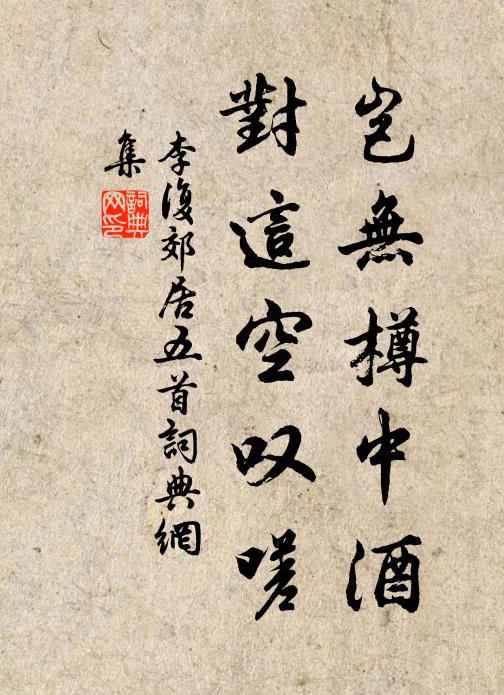 岂無樽中酒
對這空叹嗟
李復郊居五首詞典網
集
詞典
网印